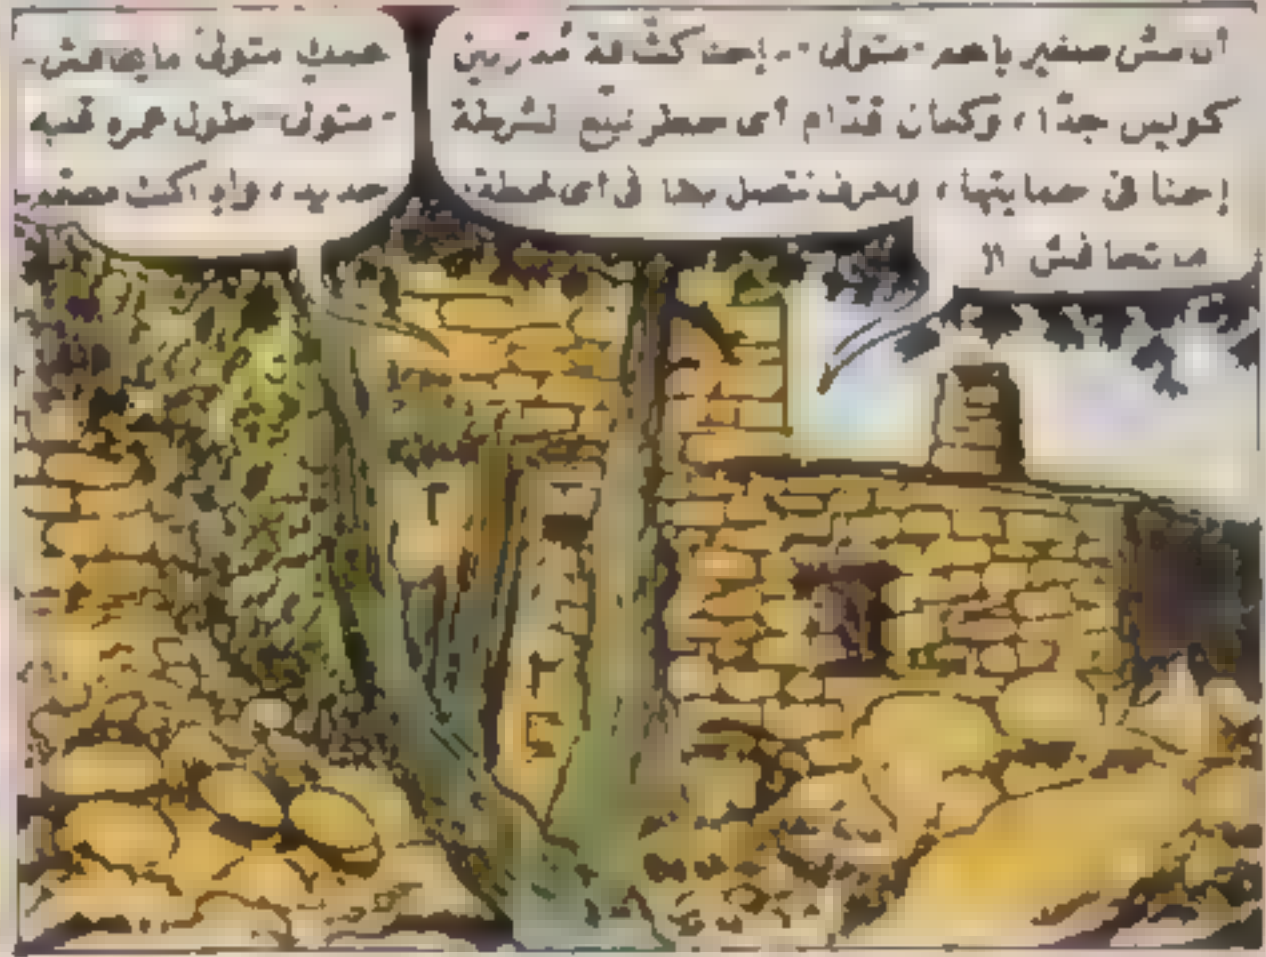 أنا مش صغير يا عم متولى - إحنا كشافة مُدَرّبين
كويس جدًّا، وكمان قدّام أى خطر نتبع لشرطة
إحنا فى حمايتها، ونعرف نتصل بها فى أى لحظة.
ما تخافش !!
عمك متولى ما يخافش -
- متولى طول عمره قلبه
حديد، ولو كنت